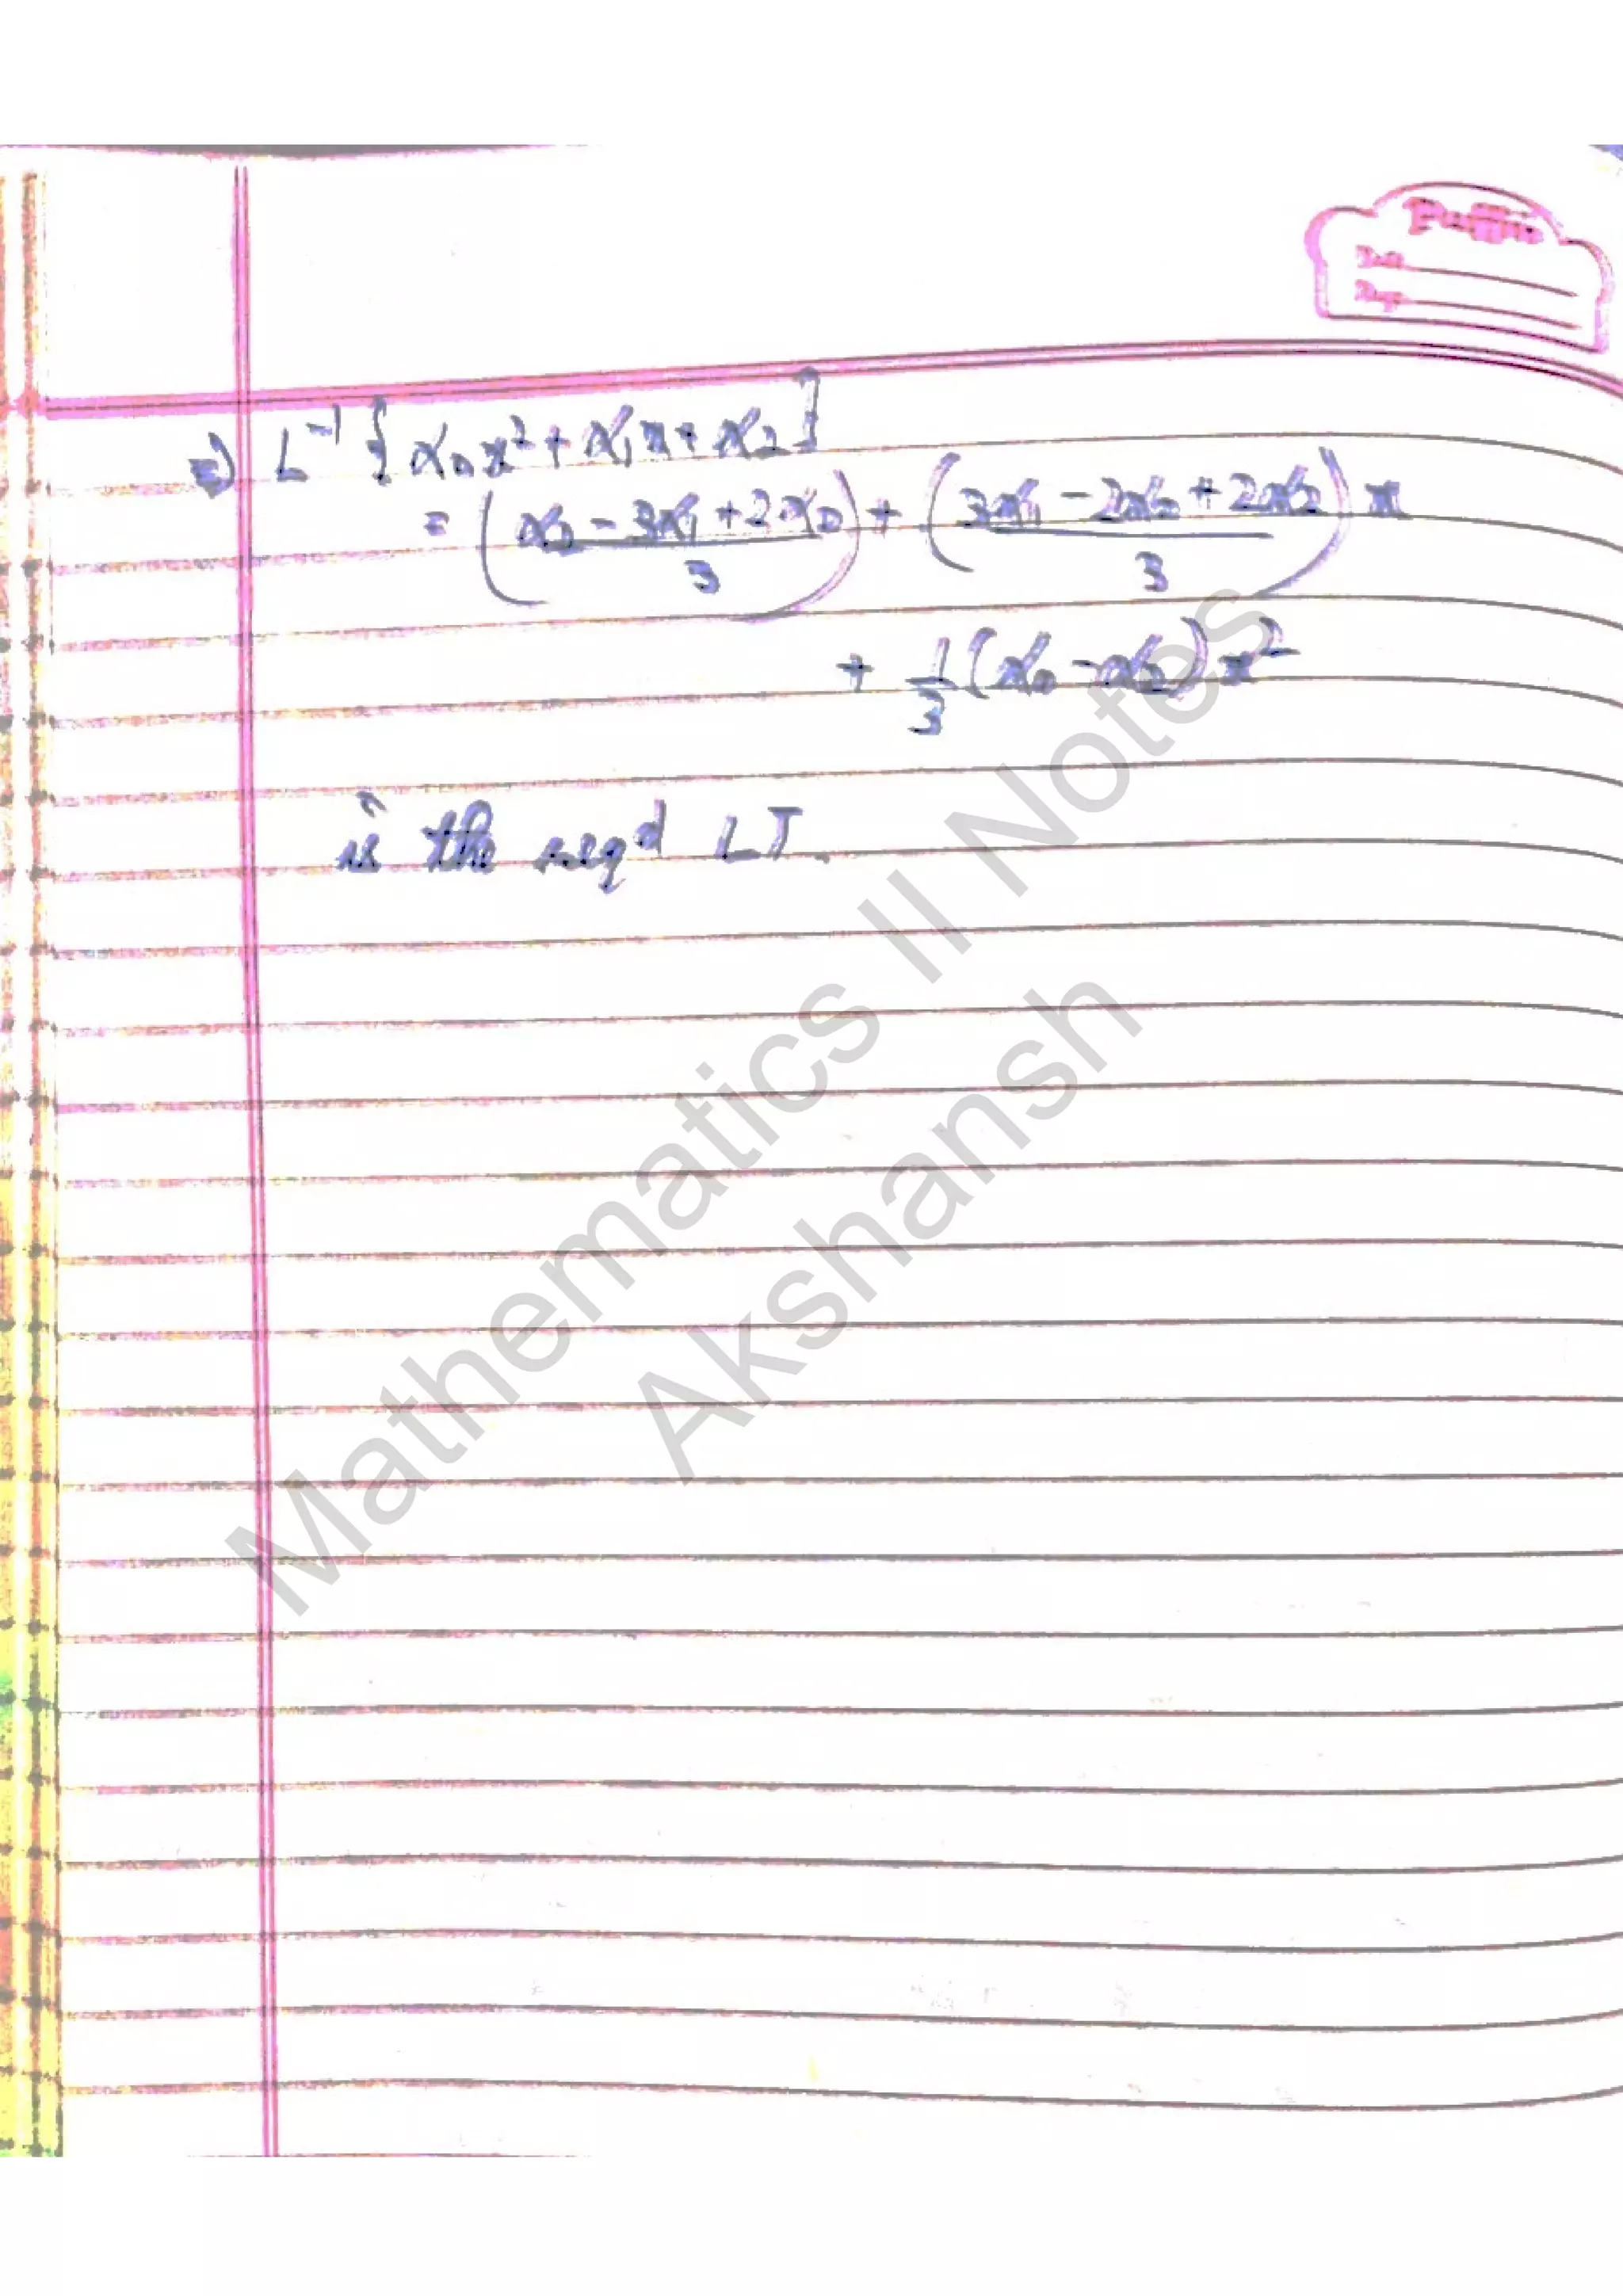 Puffin
Date
Page
⇒ L⁻¹ {α₀x² + α₁x + α₂}
= (α₂ - 3α₁ + 2α₀ / 3) + (3α₁ - 2α₀ + 2α₂ / 3) x
+ 1/3 (α₀ - α₂) x²
is the reqd LT.
Mathematics II Notes
Akshansh